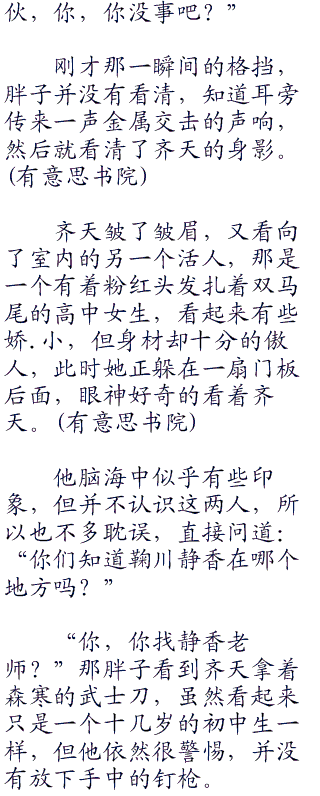 伙，你，你没事吧？”
刚才那一瞬间的格挡，
胖子并没有看清，知道耳旁
传来一声金属交击的声响，
然后就看清了齐天的身影。
(有意思书院)
齐天皱了皱眉，又看向
了室内的另一个活人，那是
一个有着粉红头发扎着双马
尾的高中女生，看起来有些
娇.小，但身材却十分的傲
人，此时她正躲在一扇门板
后面，眼神好奇的看着齐
天。(有意思书院)
他脑海中似乎有些印
象，但并不认识这两人，所
以也不多耽误，直接问道：
“你们知道鞠川静香在哪个
地方吗？”
“你，你找静香老
师？”那胖子看到齐天拿着
森寒的武士刀，虽然看起来
只是一个十几岁的初中生一
样，但他依然很警惕，并没
有放下手中的钉枪。